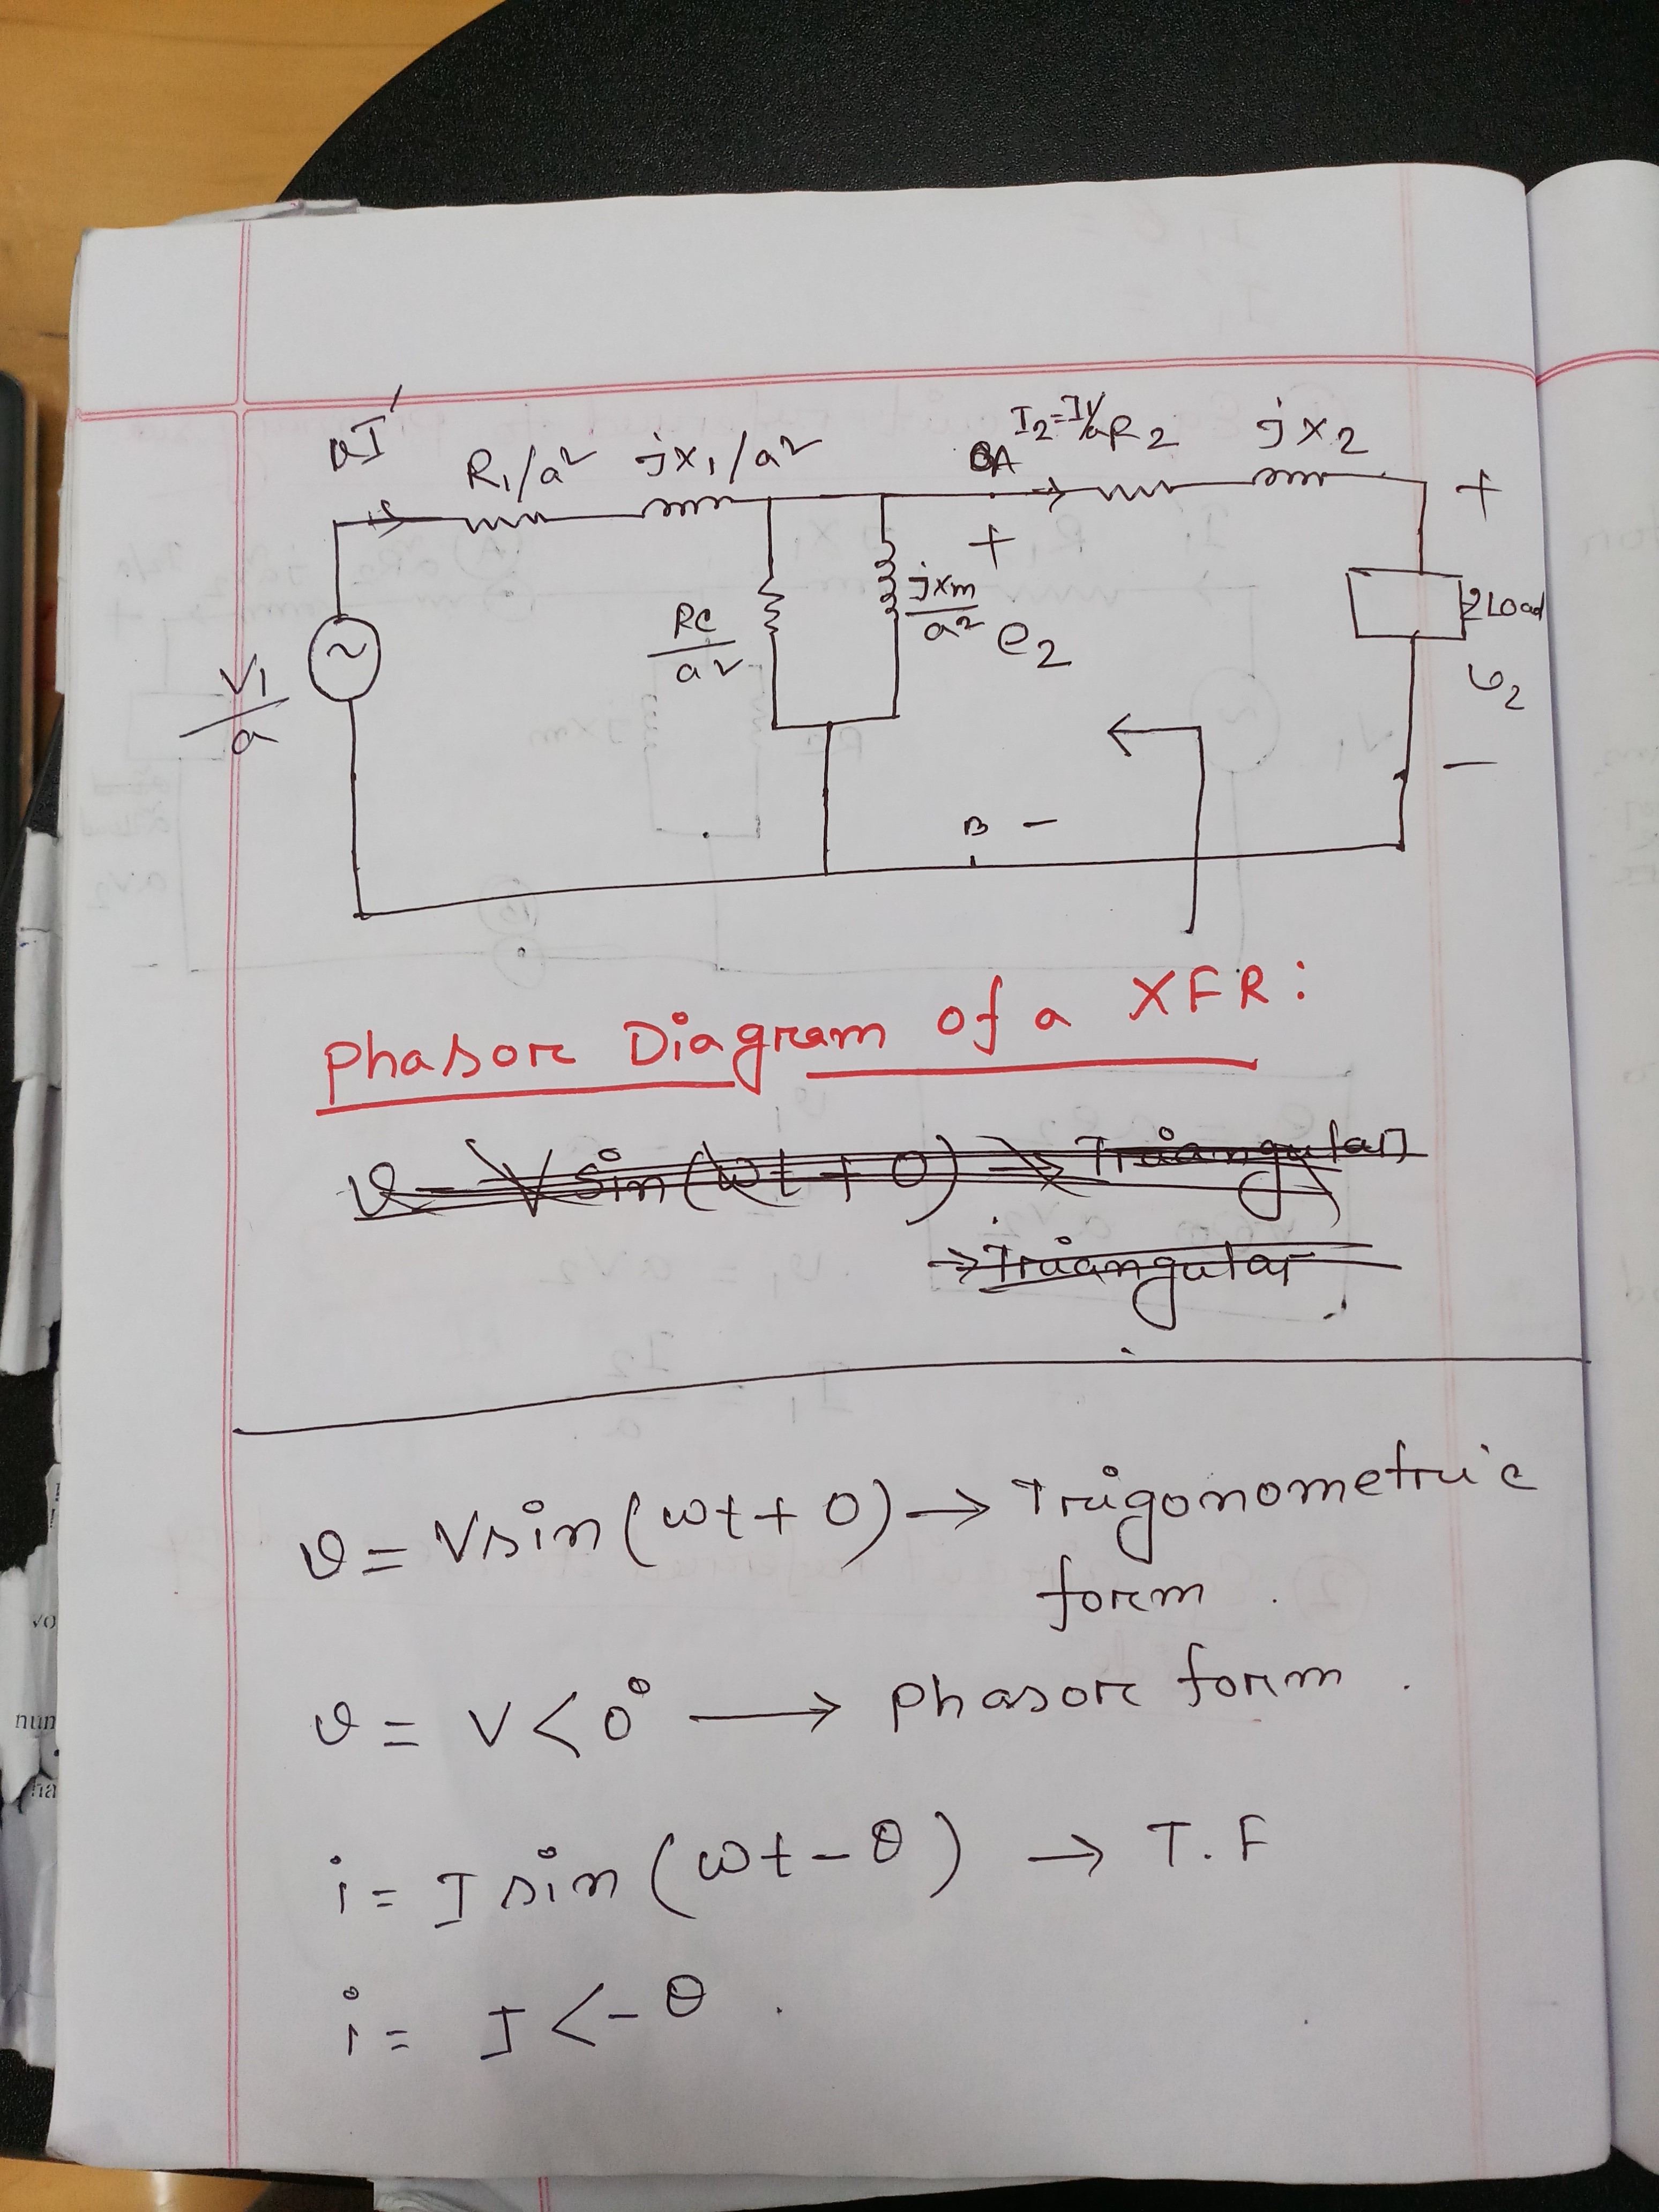 aI'
R₁/a² jx₁/a² A I₂=I'/a R₂ jx₂
+ +
Rc/a² jxm/a² e₂ ZLoad
V₁/a v₂
B − −
Phasor Diagram of a XFR:
v = V sin(ωt + 0) → Triangular
→ Triangular
v = V sin(ωt + 0) → Trigonometric
form.
v = V < 0° → Phasor form.
i = I sin(ωt − θ) → T.F
i = I < −θ.
vo
num
ha